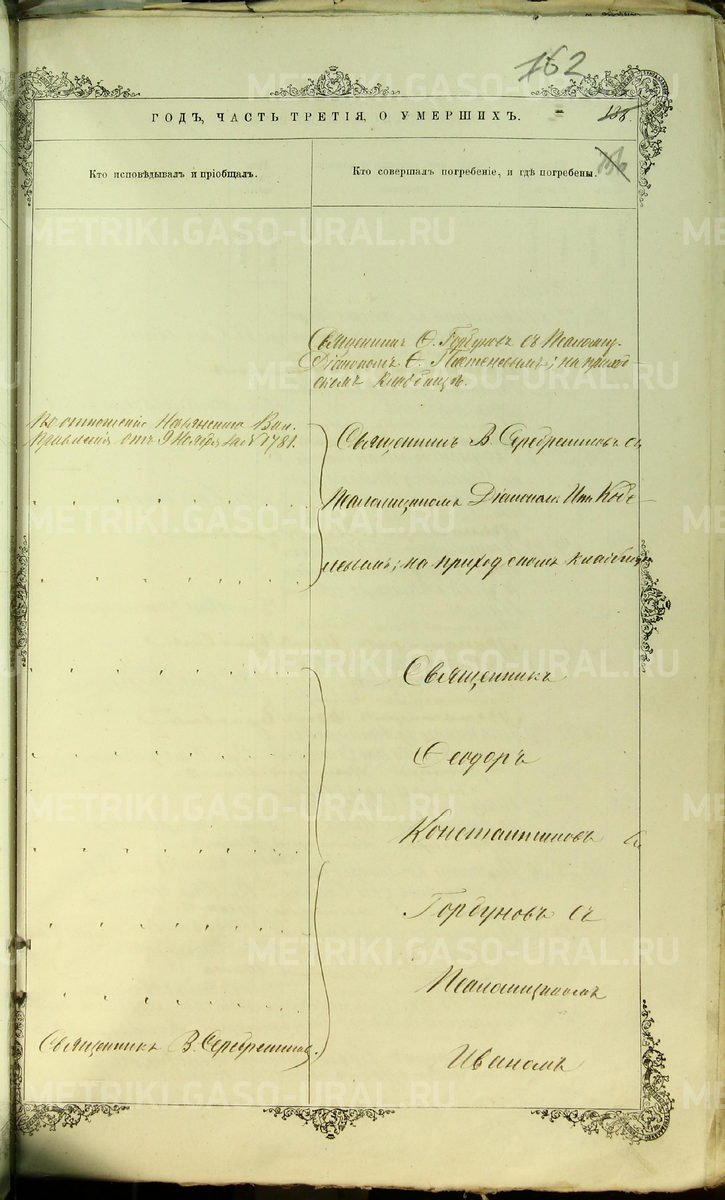 162
138
ГОДЪ, ЧАСТЬ ТРЕТІЯ, О УМЕРШИХЪ.
Кто исповѣдывалъ и пріобщалъ.
Кто совершалъ погребеніе, и гдѣ погребены.
Священникъ Ѳ. Горбуновъ съ
Діакономъ на приход-
скомъ кладбищѣ.
По отношенію Вол.
Правленія отъ 9 Ноября за № 1781.
Священникъ В. Серебренниковъ съ
Псаломщикомъ Діакономъ
на приходскомъ кладбищѣ
Священникъ
Ѳеодоръ
Константиновъ
Горбуновъ съ
Псаломщикомъ
Иваномъ
Священникъ В. Серебренниковъ
METRIKI.GASO-URAL.RU